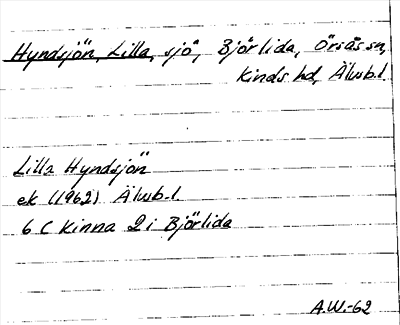 Hyndsjön, Lilla, sjö, Björlida, Örsås sn,
Kinds hd, Älvsb.l.
Lilla Hyndsjön
ek (1962) Älvsb.l.
6 C Kinna 2 i Björlida
A.W.-62